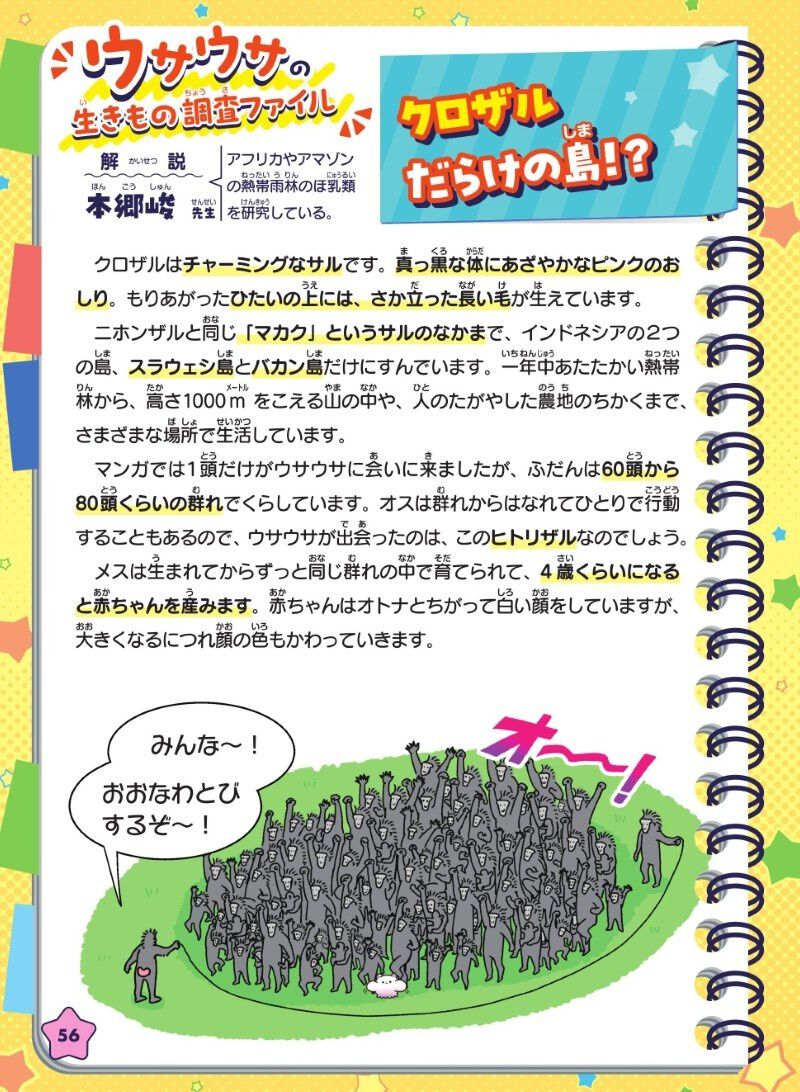 ウサウサの
生きもの調査ファイル
解説
本郷峻先生
アフリカやアマゾン
の熱帯雨林のほ乳類
を研究している。
クロザル
だらけの島!?
クロザルはチャーミングなサルです。真っ黒な体にあざやかなピンクのお
しり。もりあがったひたいの上には、さか立った長い毛が生えています。
ニホンザルと同じ「マカク」というサルのなかまで、インドネシアの2つ
の島、スラウェシ島とバカン島だけにすんでいます。一年中あたたかい熱帯
林から、高さ1000mをこえる山の中や、人のたがやした農地のちかくまで、
さまざまな場所で生活しています。
マンガでは1頭だけがウサウサに会いに来ましたが、ふだんは60頭から
80頭くらいの群れでくらしています。オスは群れからはなれてひとりで行動
することもあるので、ウサウサが出会ったのは、このヒトリザルなのでしょう。
メスは生まれてからずっと同じ群れの中で育てられて、4歳くらいになる
と赤ちゃんを産みます。赤ちゃんはオトナとちがって白い顔をしていますが、
大きくなるにつれ顔の色もかわっていきます。
みんな〜!
おおなわとび
するぞ〜!
オ〜〜!
56